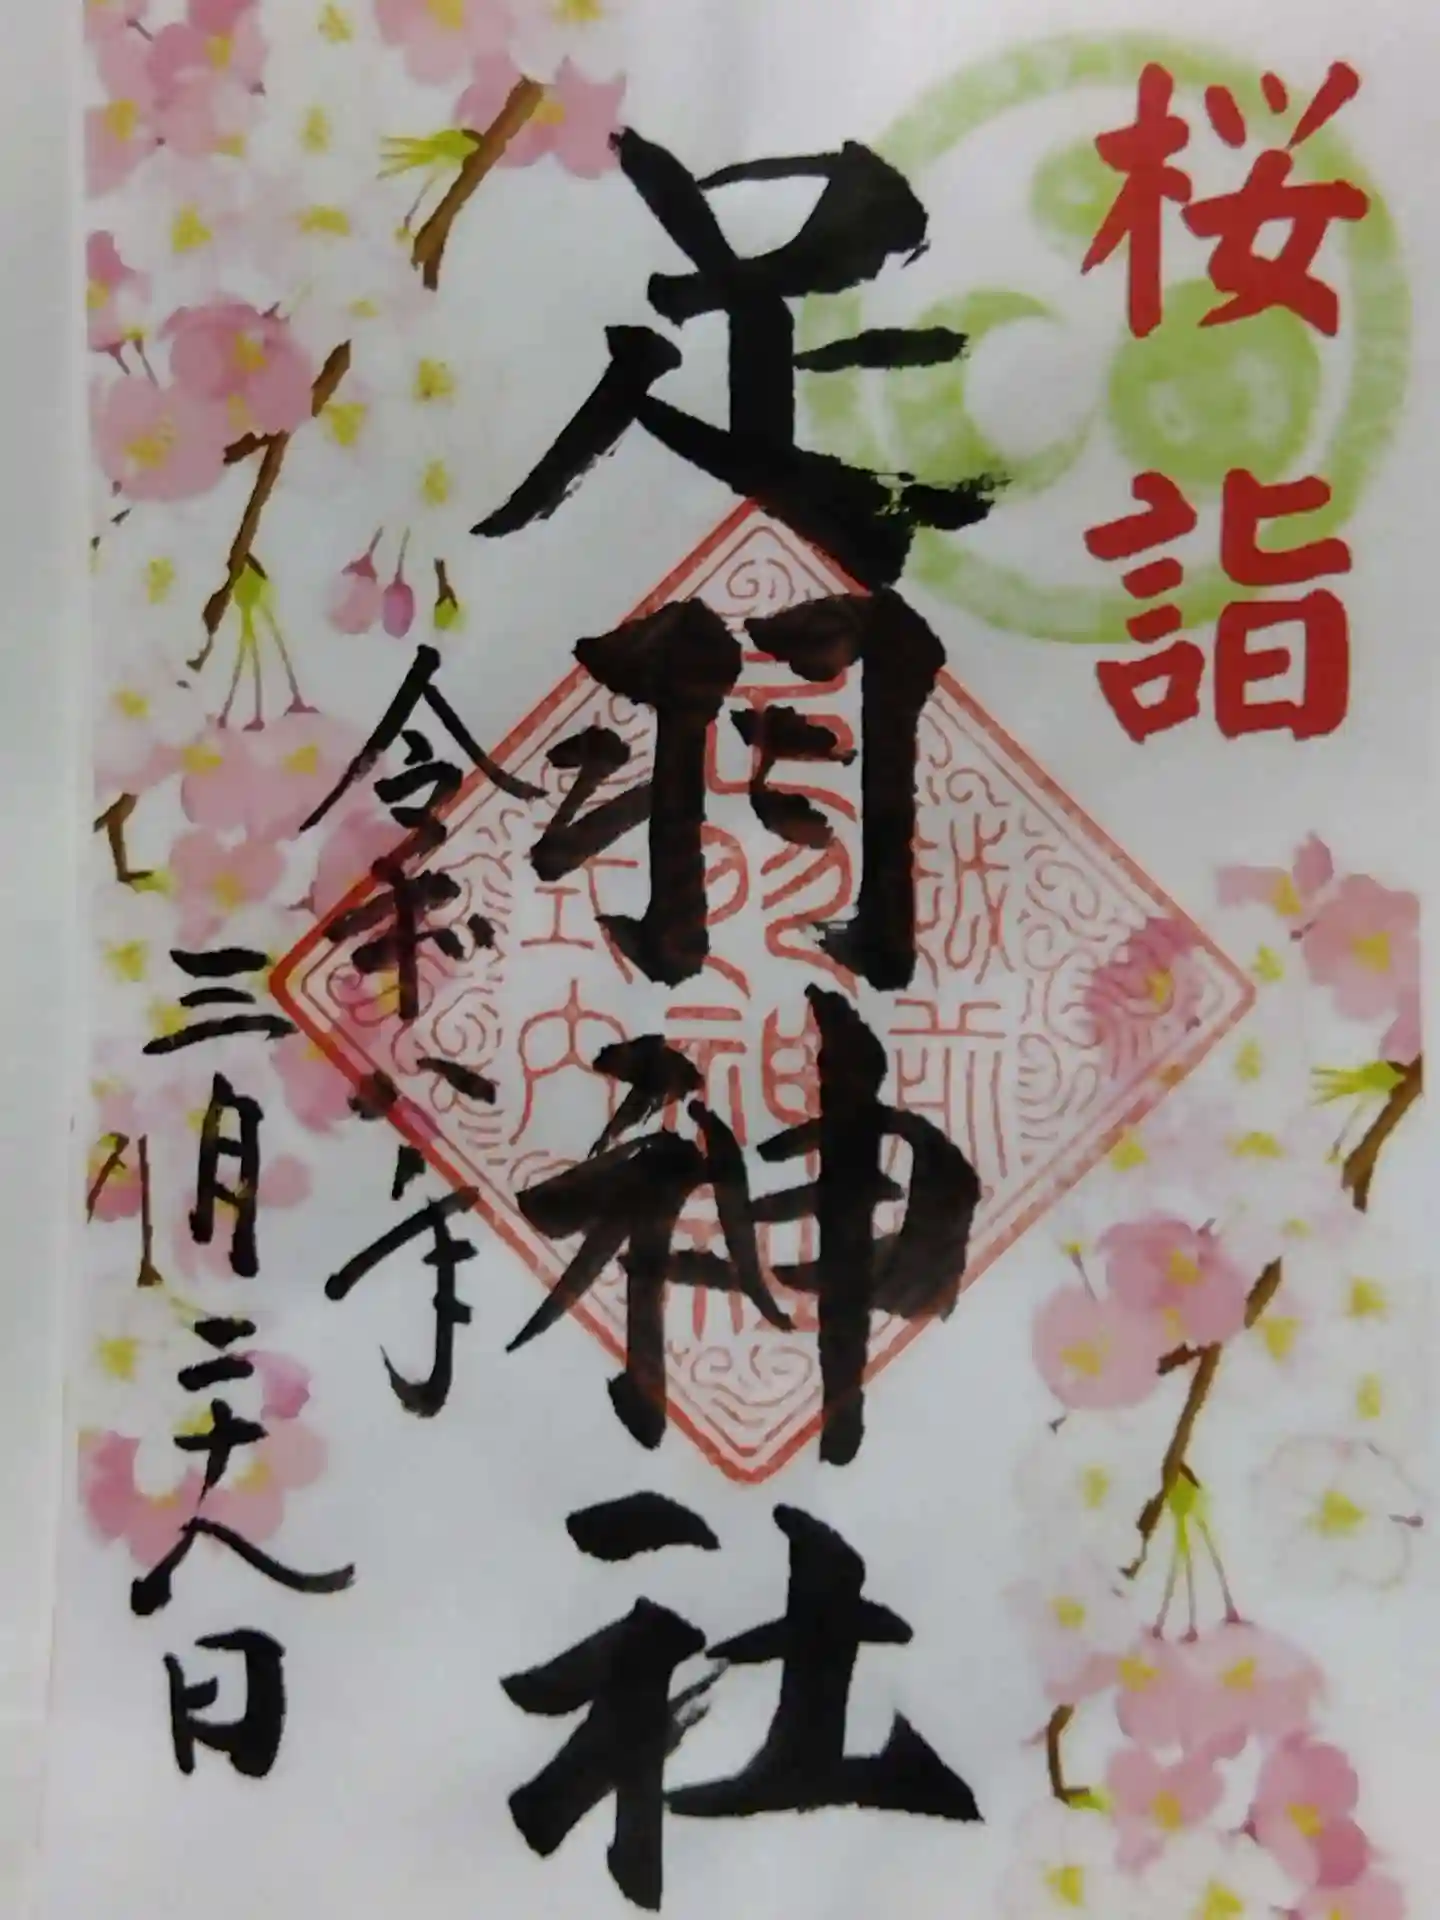 桜詣
足羽神社
越前
足羽神社
式内
令和六年
三月二十八日